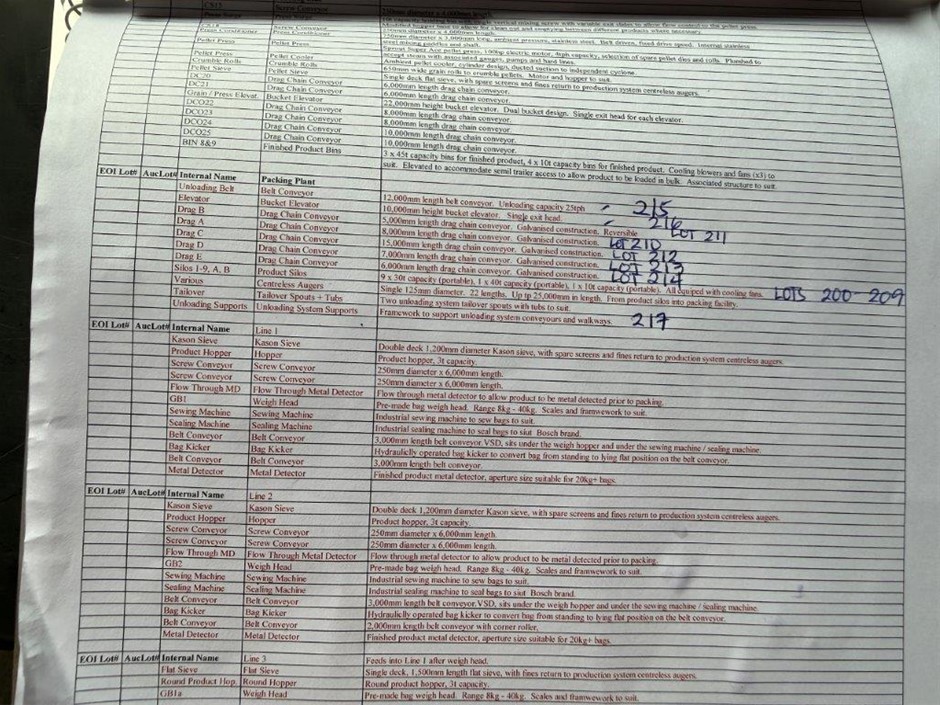 CS13 Screw Conveyor
Screw Conveyor 250mm diameter x 4,000mm length.
Press Conditioner
Pellet Press Pellet Press
Pellet Cooler Ambient pellet cooler, cylinder design, ducted suction to independent cyclone.
Crumble Rolls Crumble Rolls 650mm wide grain rolls to crumble pellets. Motor and hopper to suit.
Pellet Sieve Pellet Sieve Single deck flat sieve, with spare screens and fines return to production system centreless augers.
DC20 Drag Chain Conveyor 6,000mm length drag chain conveyor.
DC21 Drag Chain Conveyor 6,000mm length drag chain conveyor.
Grain / Press Elevat. Bucket Elevator 22,000mm height bucket elevator. Dual bucket design. Single exit head for each elevator.
DCO22 Drag Chain Conveyor 8,000mm length drag chain conveyor.
DCO23 Drag Chain Conveyor 8,000mm length drag chain conveyor.
DCO24 Drag Chain Conveyor 10,000mm length drag chain conveyor.
DCO25 Drag Chain Conveyor 10,000mm length drag chain conveyor.
BIN 8&9 Finished Product Bins 3 x 45t capacity bins for finished product, 4 x 10t capacity bins for finished product. Cooling blowers and fans (x3) to
suit. Elevated to accommodate semi trailer access to allow product to be loaded in bulk. Associated structure to suit.
EOI Lot# AucLot# Internal Name Packing Plant
Unloading Belt Belt Conveyor 12,000mm length belt conveyor. Unloading capacity 25tph 215
Elevator Bucket Elevator 10,000mm height bucket elevator. Single exit head. 216
Drag B Drag Chain Conveyor 5,000mm length drag chain conveyor. Galvanised construction. Reversible LOT 211
Drag A Drag Chain Conveyor 8,000mm length drag chain conveyor. Galvanised construction. LOT 210
Drag C Drag Chain Conveyor 15,000mm length drag chain conveyor. Galvanised construction. LOT 212
Drag D Drag Chain Conveyor 7,000mm length drag chain conveyor. Galvanised construction. LOT 213
Drag E Drag Chain Conveyor 6,000mm length drag chain conveyor. Galvanised construction. LOT 214
Silos 1-9, A, B Product Silos 9 x 30t capacity (portable), 1 x 40t capacity (portable), 1 x 10t capacity (portable). All equiped with cooling fans. LOTS 200-209
Various Centreless Augers Single 125mm diameter. 22 lengths. Up tp 25,000mm in length. From product silos into packing facility.
Tailover Tailover Spouts + Tubs Two unloading system tailover spouts with tubs to suit.
Unloading Supports Unloading System Supports Framework to support unloading system conveyours and walkways. 217
EOI Lot# AucLot# Internal Name Line 1
Kason Sieve Kason Sieve Double deck 1,200mm diameter Kason sieve, with spare screens and fines return to production system centreless augers.
Product Hopper Hopper Product hopper, 3t capacity.
Screw Conveyor Screw Conveyor 250mm diameter x 6,000mm length.
Screw Conveyor Screw Conveyor 250mm diameter x 6,000mm length.
Flow Through MD Flow Through Metal Detector Flow through metal detector to allow product to be metal detected prior to packing.
GB1 Weigh Head Pre-made bag weigh head. Range 8kg - 40kg. Scales and framwework to suit.
Sewing Machine Sewing Machine Industrial sewing machine to sew bags to suit.
Sealing Machine Sealing Machine Industrial sealing machine to seal bags to siut Bosch brand.
Belt Conveyor Belt Conveyor 3,000mm length belt conveyor.VSD, sits under the weigh hopper and under the sewing machine / sealing machine.
Bag Kicker Bag Kicker Hydraulicly operated bag kicker to convert bag from standing to lying flat position on the belt conveyor.
Belt Conveyor Belt Conveyor 3,000mm length belt conveyor.
Metal Detector Metal Detector Finished product metal detector, aperture size suitable for 20kg+ bags.
EOI Lot# AucLot# Internal Name Line 2
Kason Sieve Kason Sieve Double deck 1,200mm diameter Kason sieve, with spare screens and fines return to production system centreless augers.
Product Hopper Hopper Product hopper, 3t capacity.
Screw Conveyor Screw Conveyor 250mm diameter x 6,000mm length.
Screw Conveyor Screw Conveyor 250mm diameter x 6,000mm length.
Flow Through MD Flow Through Metal Detector Flow through metal detector to allow product to be metal detected prior to packing.
GB2 Weigh Head Pre-made bag weigh head. Range 8kg - 40kg. Scales and framwework to suit.
Sewing Machine Sewing Machine Industrial sewing machine to sew bags to suit.
Sealing Machine Sealing Machine Industrial sealing machine to seal bags to siut Bosch brand.
Belt Conveyor Belt Conveyor 3,000mm length belt conveyor.VSD, sits under the weigh hopper and under the sewing machine / sealing machine.
Bag Kicker Bag Kicker Hydraulicly operated bag kicker to convert bag from standing to lying flat position on the belt conveyor.
Belt Conveyor Belt Conveyor 2,000mm length belt conveyor with corner roller.
Metal Detector Metal Detector Finished product metal detector, aperture size suitable for 20kg+ bags.
EOI Lot# AucLot# Internal Name Line 3 Feeds into Line 1 after weigh head.
Flat Sieve Flat Sieve Single deck, 1,500mm length flat sieve, with fines return to production system centreless augers.
Round Product Hop. Round Hopper Round product hopper, 3t capacity.
GB1a Weigh Head Pre-made bag weigh head. Range 8kg - 40kg. Scales and framwework to suit.